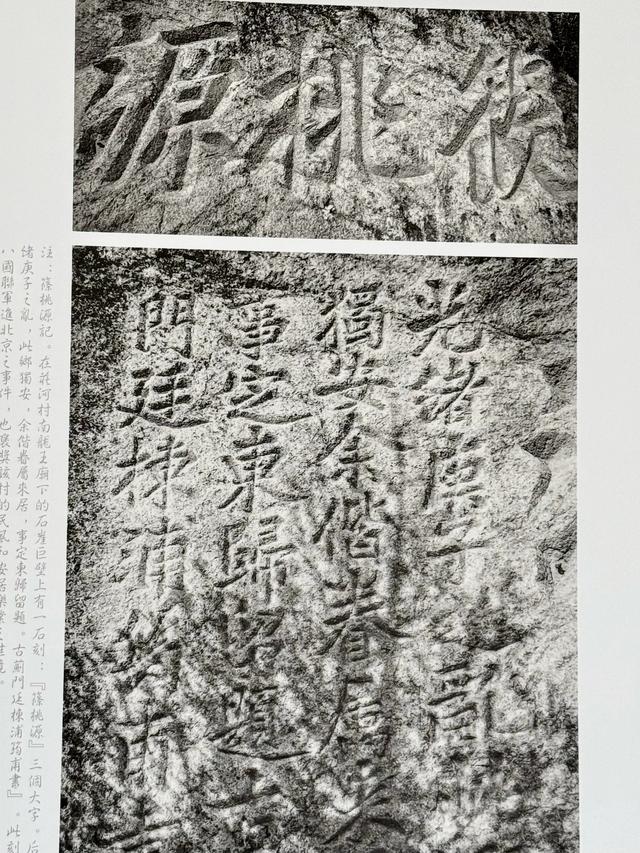 後桃源
光緒庚子之亂
獨安余偕眷屬來
事定東歸留題古
門廷棟浦筠甫書
注：篠桃源記。在莊河村南龍王廟下的石崖巨壁上有一石刻：『篠桃源』三個大字。后
绪庚子之亂，此鄉獨安，余偕眷屬來居，事定東歸留題。古薊門廷棟浦筠甫書』。此刻
八國聯軍進北京之事件，也褒獎該村的民風和安居樂業之佳境。